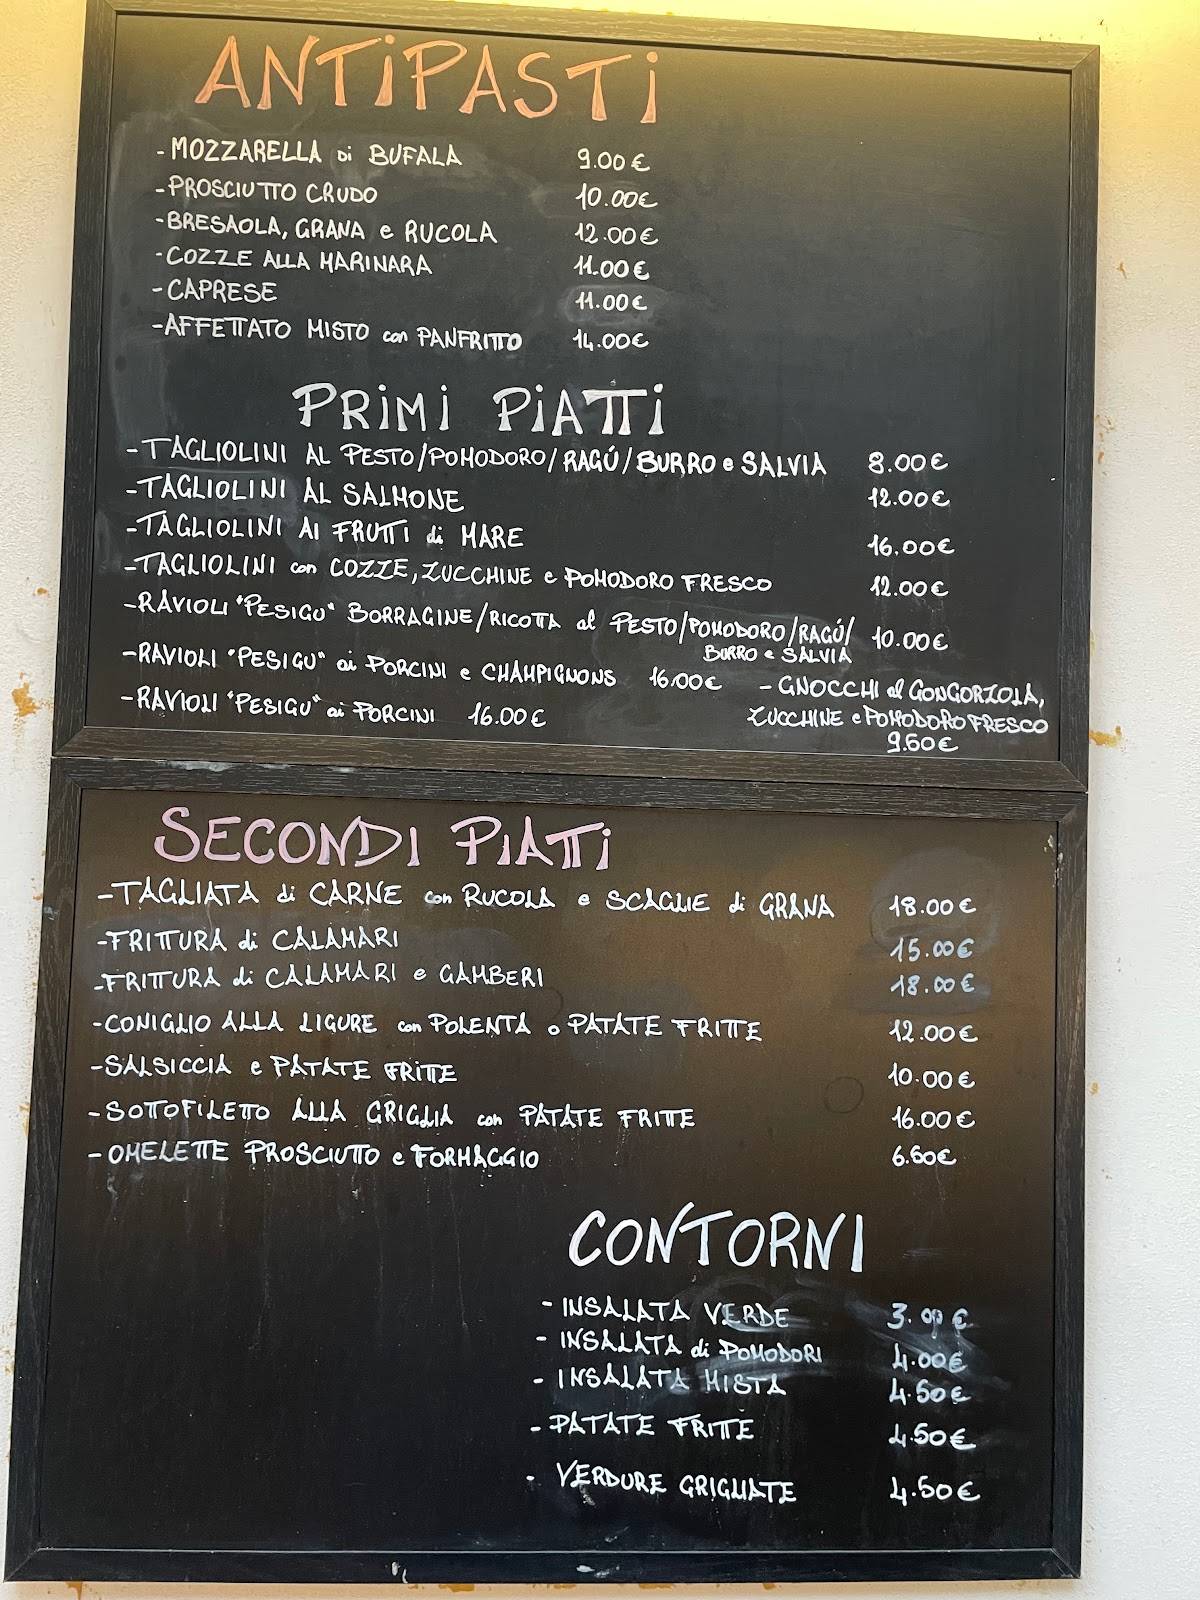 ANTIPASTI
- MOZZARELLA Di BUFALA 9.00 €
- PROSCIUTTO CRUDO 10.00€
- BRESAOLA, GRANA e RUCOLA 12.00€
- COZZE ALLA MARINARA 11.00€
- CAPRESE 11.00€
- AFFETTATO MISTO con PANFRITTO 14.00€
PRIMI PIATTI
- TAGLIOLINI AL PESTO/POMODORO/RAGÚ/BURRO e SALVIA 8.00€
- TAGLIOLINI AL SALMONE 12.00€
- TAGLIOLINI AI FRUTTI di MARE 16.00€
- TAGLIOLINI con COZZE, ZUCCHINE e POMODORO FRESCO 12.00€
- RAVIOLI "PESIGU" BORRAGINE/RICOTTA al PESTO/POMODORO/RAGÚ/ 10.00€
BURRO e SALVIA
- RAVIOLI "PESIGU" ai PORCINI e CHAMPIGNONS 16.00€
- RAVIOLI "PESIGU" ai PORCINI 16.00€
- GNOCCHI al GONGORZOLA,
ZUCCHINE e POMODORO FRESCO
9.50€
SECONDI PIATTI
- TAGLIATA di CARNE con RUCOLA e SCAGLIE di GRANA 18.00€
- FRITTURA di CALAMARI 15.00€
- FRITTURA di CALAMARI e GAMBERI 18.00€
- CONIGLIO ALLA LIGURE con POLENTA o PATATE FRITTE 12.00€
- SALSICCIA e PATATE FRITTE 10.00€
- SOTTOFILETTO ALLA GRIGLIA con PATATE FRITTE 16.00€
- OMELETTE PROSCIUTTO e FORMAGGIO 6.50€
CONTORNI
- INSALATA VERDE 3.00 €
- INSALATA di POMODORI 4.00€
- INSALATA MISTA 4.50€
- PATATE FRITTE 4.50€
- VERDURE GRIGLIATE 4.50€